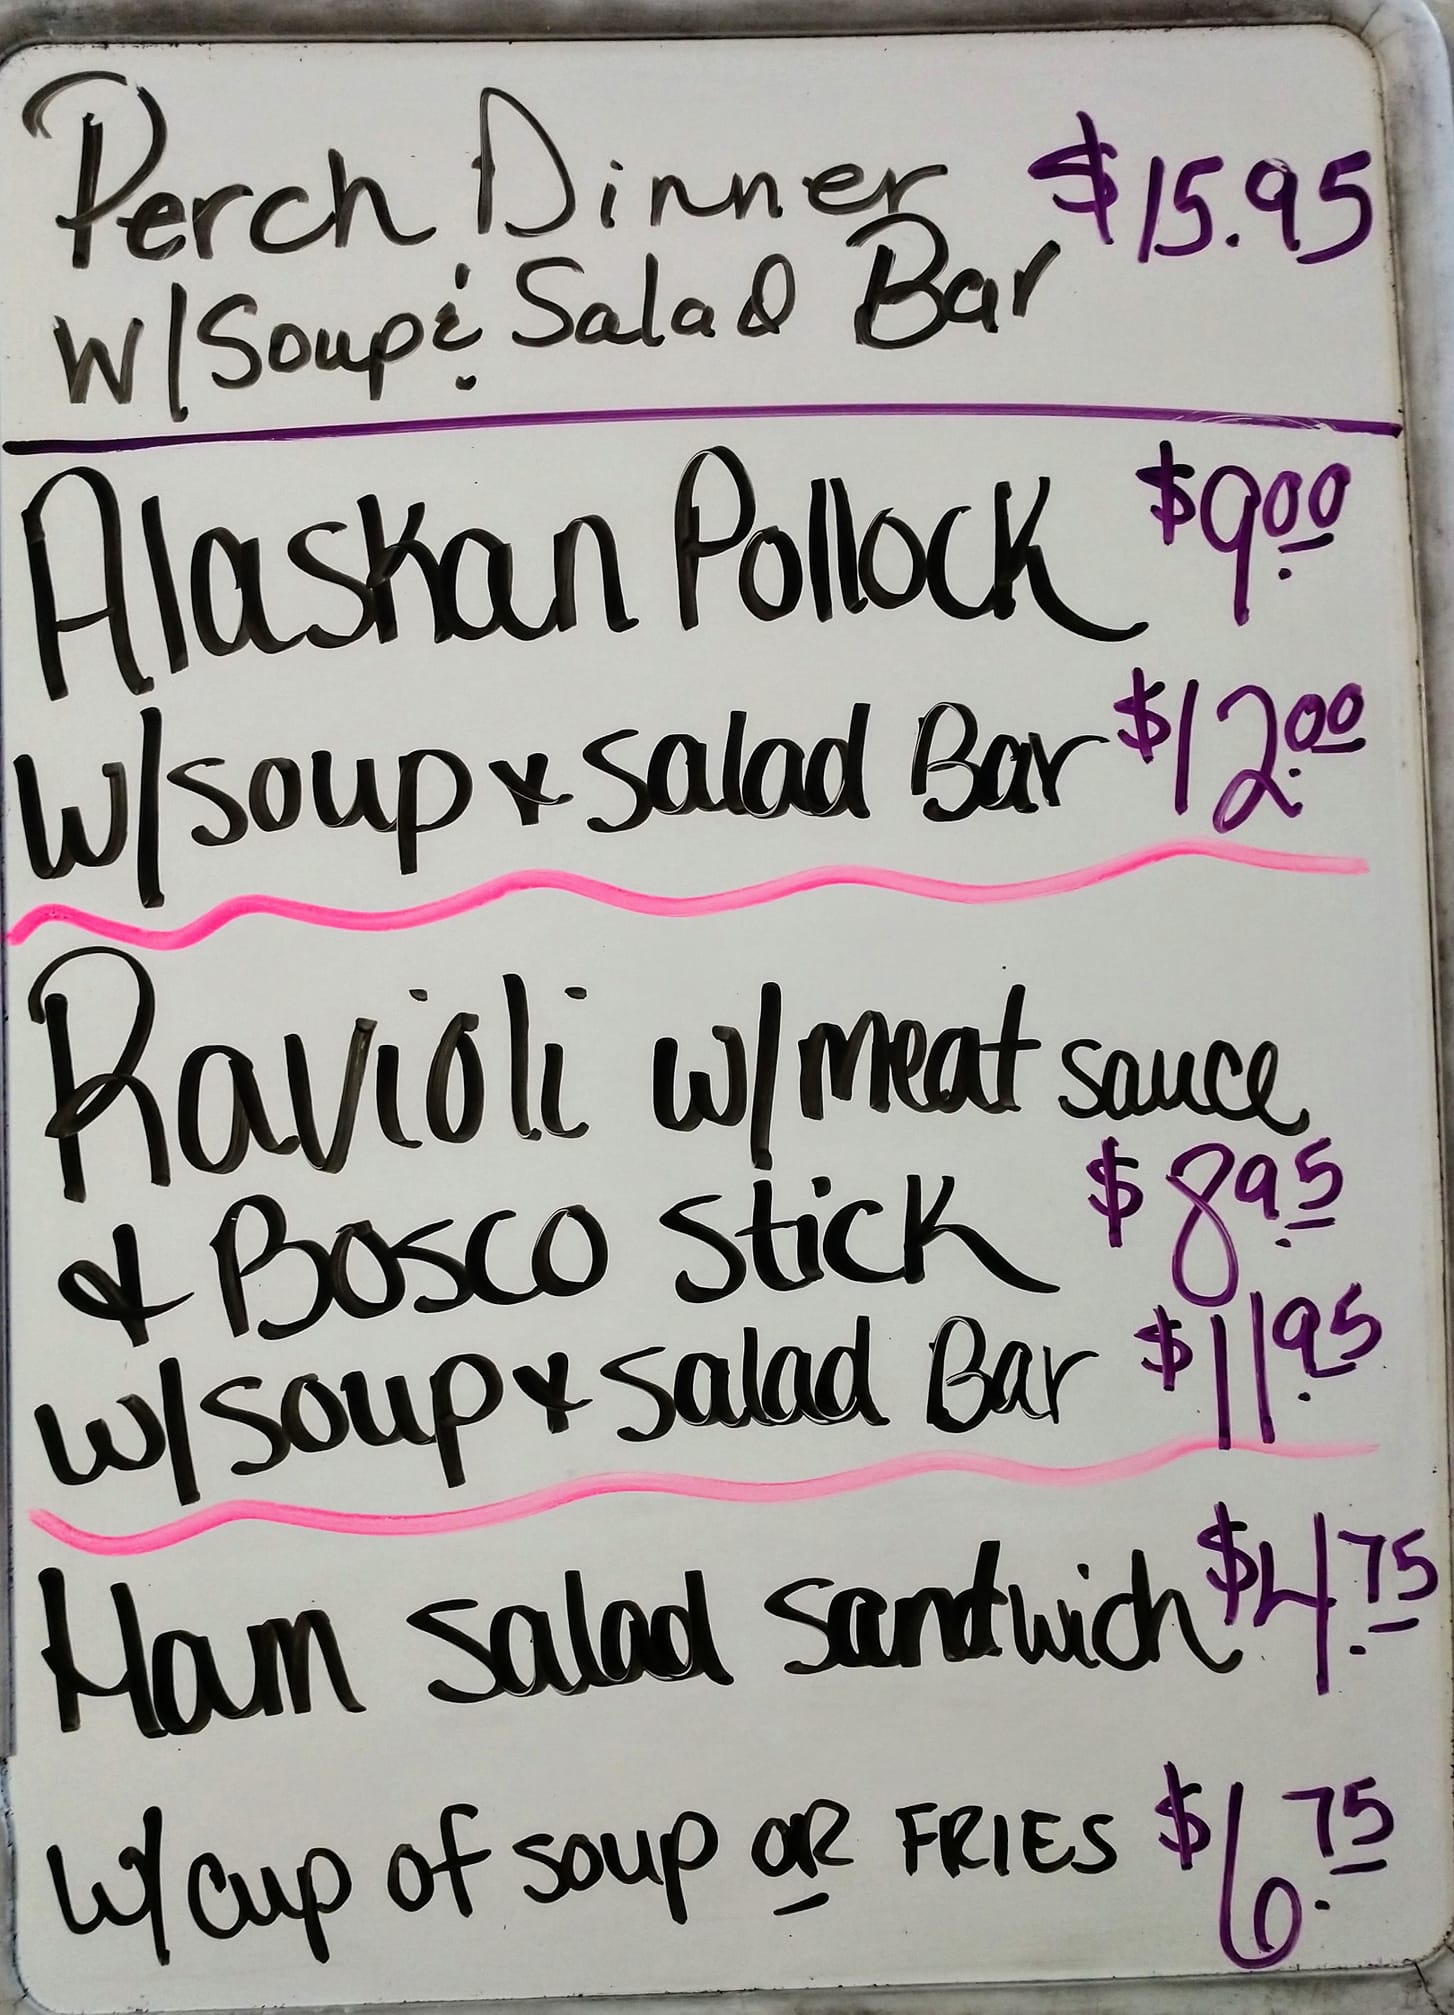 Perch Dinner $15.95
w/Soup & Salad Bar
Alaskan Pollock $9.00
w/soup & salad Bar $12.00
Ravioli w/meat sauce
& Bosco Stick $8.95
w/soup & salad Bar $11.95
Ham salad sandwich $4.75
w/ cup of soup OR FRIES $6.75